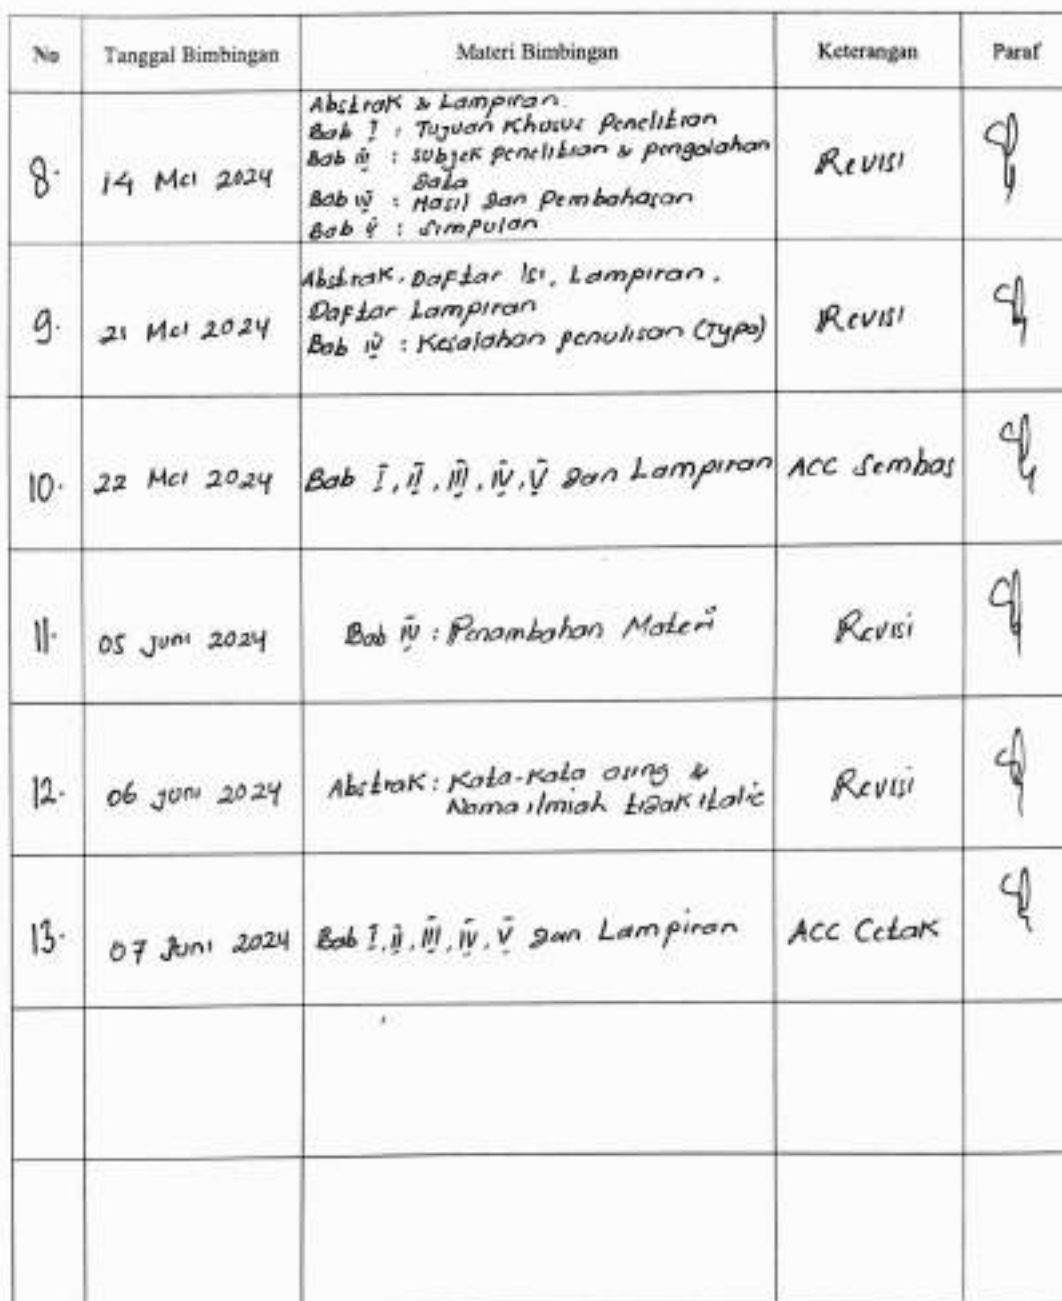 No Tanggal Bimbingan Materi Bimbingan Keterangan Paraf
Abstrak & Lampiran.
Bab I : Tujuan Khusus Penelitian
Bab III : Subjek penelitian & pengolahan
data
8. 14 Mei 2024 Revisi
Bab IV : Hasil dan Pembahasan
Bab V : Simpulan
Abstrak, Daftar Isi, Lampiran.
Daftar Lampiran
9. 21 Mei 2024 Revisi
Bab IV : Kesalahan penulisan (Typo)
10. 22 Mei 2024 Bab I, II, III, IV, V dan Lampiran ACC Sembas
11. 05 Juni 2024 Bab IV : Penambahan Materi Revisi
12. 06 Juni 2024 Abstrak : Kata-Kata asing & Revisi
Nama ilmiah tidak italic
13. 07 Juni 2024 Bab I, II, III, IV, V dan Lampiran ACC Cetak